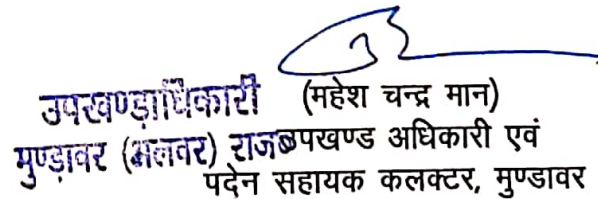 उपखण्डाधिकारी (महेश चन्द्र मान)
मुण्डावर (अलवर) राज० उपखण्ड अधिकारी एवं
पदेन सहायक कलक्टर, मुण्डावर